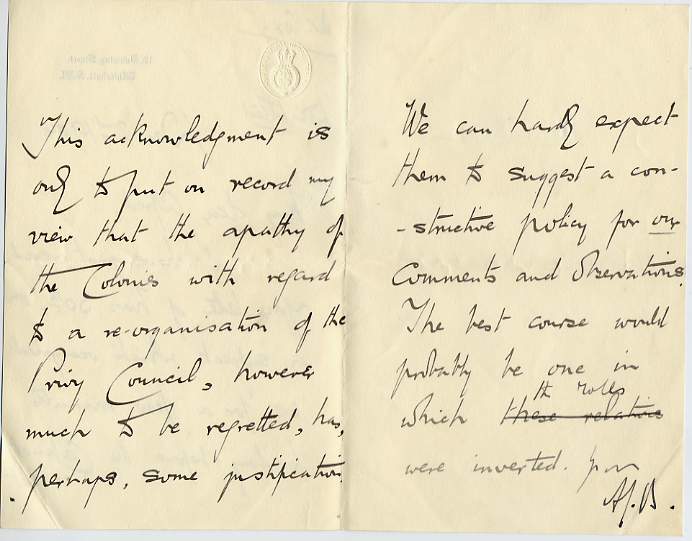 This acknowledgment is
only to put on record my
view that the apathy of
the Colonies with regard
to a re-organisation of the
Privy Council, however
much to be regretted, has,
perhaps, some justification.
We can hardly expect
them to suggest a con-
-structive policy for our
Comments and observations.
The best course would
probably be one in
th roles
which these relations
were inverted.
AJ.B.